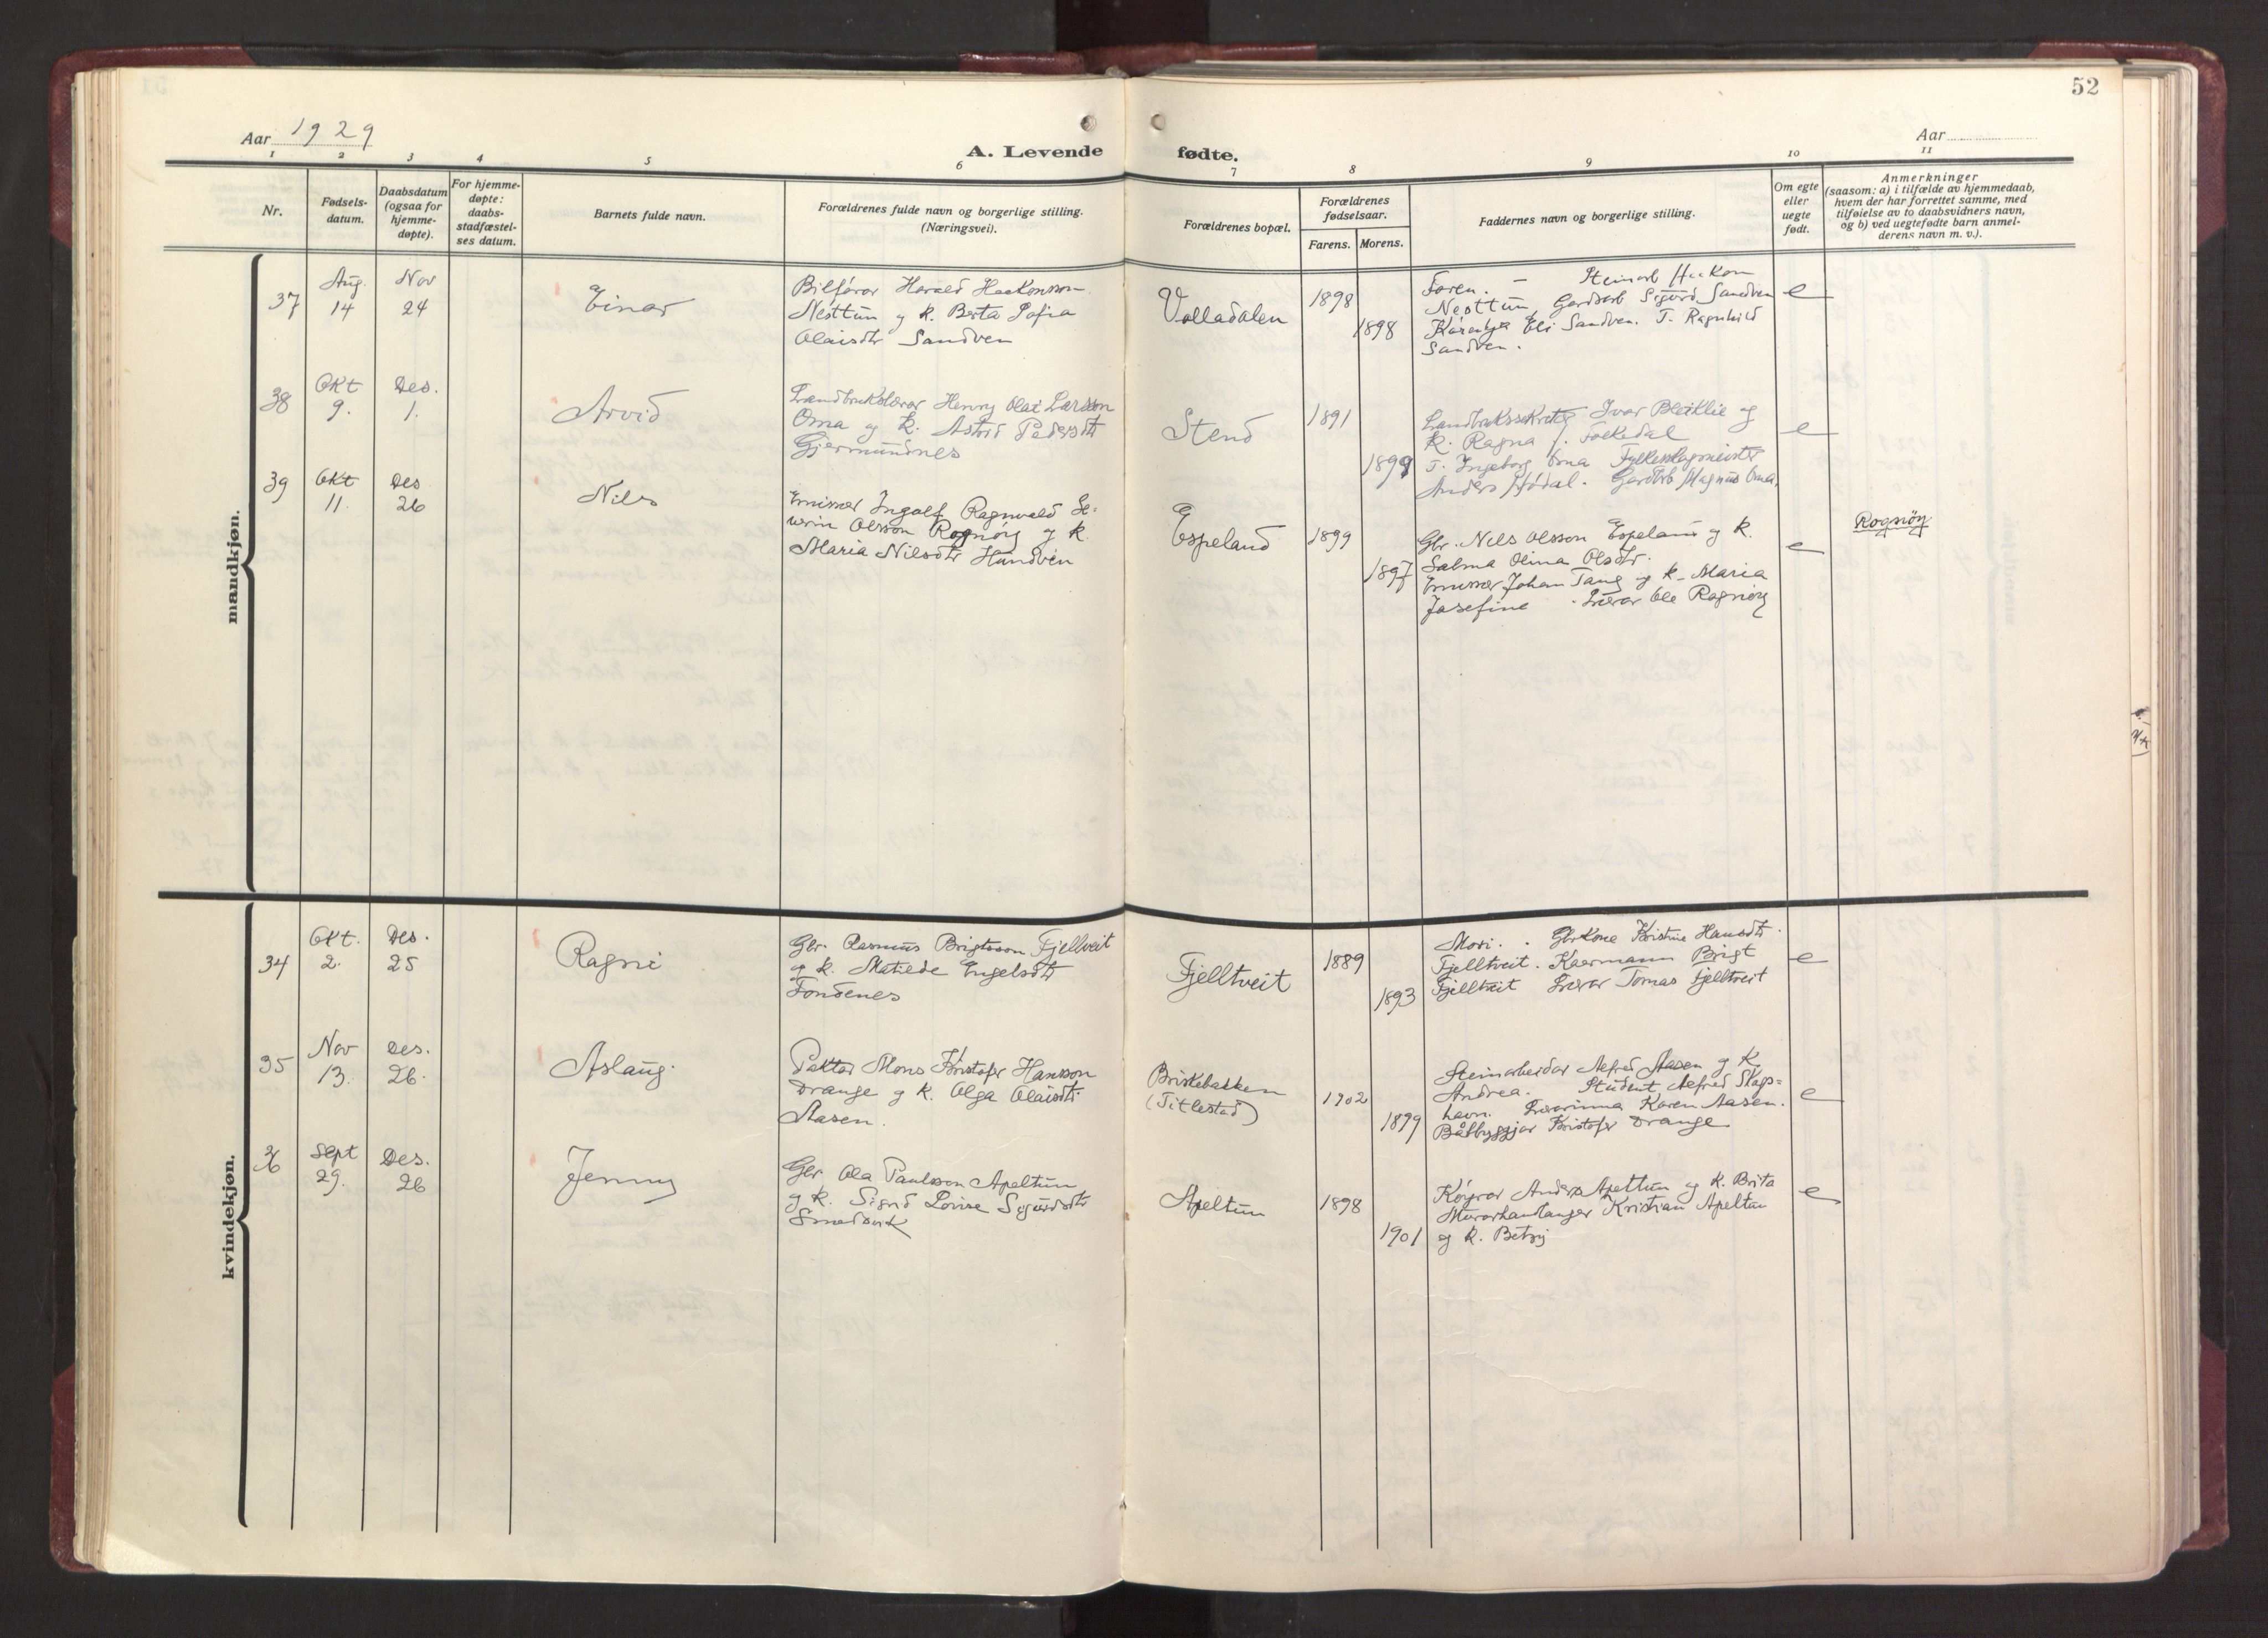 52
Aar 1929
Aar
A. Levende fødte.
1 2 3 4 5 6 7 8 9 10 11
Nr.
Fødsels-
datum.
Daabsdatum
(ogsaa for
hjemme-
døpte).
For hjemme-
døpte:
daabs-
stadfæstel-
ses datum.
Barnets fulde navn.
Forældrenes fulde navn og borgerlige stilling.
(Næringsvei).
Forældrenes bopæl.
Forældrenes
fødselsaar.
Farens. Morens.
Faddernes navn og borgerlige stilling.
Om egte
eller
uegte
født.
Anmerkninger
(saasom: a) i tilfælde av hjemmedaab,
hvem der har forrettet samme, med
tilføielse av to daabsvidners navn,
og b) ved uegtefødte barn anmel-
derens navn m. v.).
mandkjøn.
37
Aug.
14
Nov
24
Einar
Bilførar Harald Haakonsson
Nesttun og k. Berta Sofia
Olaisdtr Sandven
Volladalen
1898
1898
Faren. — Steinarb Haakon
Nesttun, Gardsarb Sigurd Sandven
Eli Sandven. T. Ragnhild
Sandven.
e
38
Okt
9.
Des.
1.
Arvid
Landbrukslærar Henry Olai Larsson
Oma og k. Astrid Pedersdtr
Gjermundnes
Stend
1891
1899
Ivar Bleiklie og
k. Ragna f. Folkedal
T. Ingeborg Oma
Anders Magnus Oma.
e
39
Okt
11.
Des
26
Nils
Emissær Ingolf Ragnvald Se-
verin Olsson Rognøy og k.
Maria Nilsdtr Handvin
Espeland
1899
1897
Gbr. Nils Olsson Espeland og k.
Salma Olina Olsdtr.
Emissær Johan Tang og k. Maria
Josefine. Lærar Ole Rognøy
e
Rognøy
kvindekjøn.
34
Okt.
2.
Des.
25
Ragni
Gbr. Rasmus Brigtsson Fjelltveit
og k. Matilde Engelsdtr
Fondenes
Fjelltveit
1889
1893
Mori. Gbrkone Kristine Hansdtr.
Fjelltveit. Kaarmann Brigt
Fjelltveit Lærar Tomas Fjelltveit
e
35
Nov
13.
Des.
26.
Aslaug
Paktar Mons Kristofer Hansson
Drange og k. Olga Olaisdtr.
Aasen.
Briskebakken
(Titlestad)
1902
1899
Steinarbeidar Alfred Aasen og k
Andrea. Student Alfred Skogs-
havn. Lærarinna Karen Aasen.
Båtbyggjar Kristofer Drange
e
36
Sept
29.
Des.
26
Jenny
Gbr Ola Paulsson Apeltun
og k. Sigrid Lovise Sigurdsdtr
Smedsvik
Apeltun
1898
1901
Køyrar Anders Apeltun og k. Brita
Murarhandlanger Kristian Apeltun
og k. Betsy
e